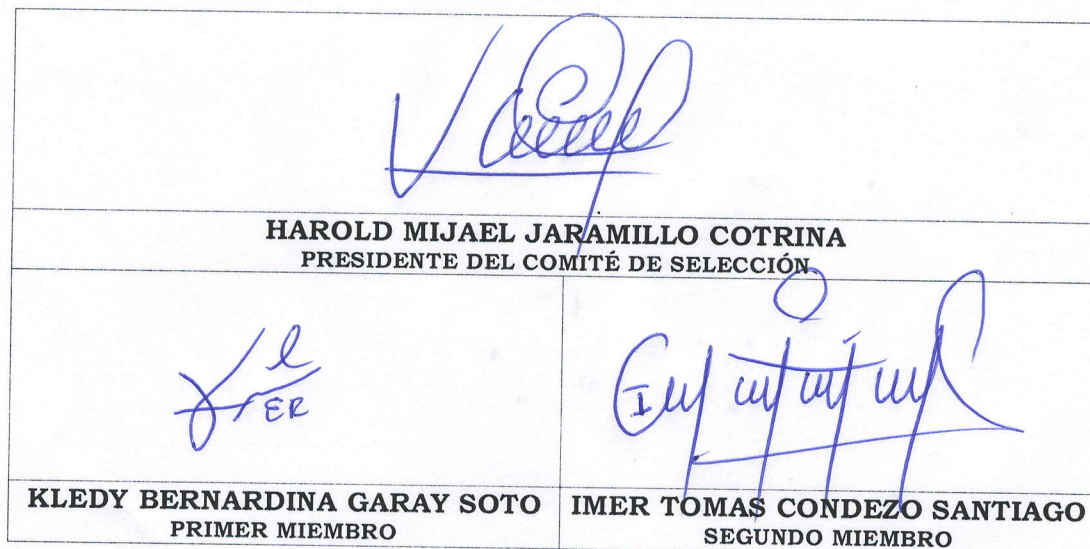 HAROLD MIJAEL JARAMILLO COTRINA
PRESIDENTE DEL COMITÉ DE SELECCIÓN
KLEDY BERNARDINA GARAY SOTO
PRIMER MIEMBRO
IMER TOMAS CONDEZO SANTIAGO
SEGUNDO MIEMBRO